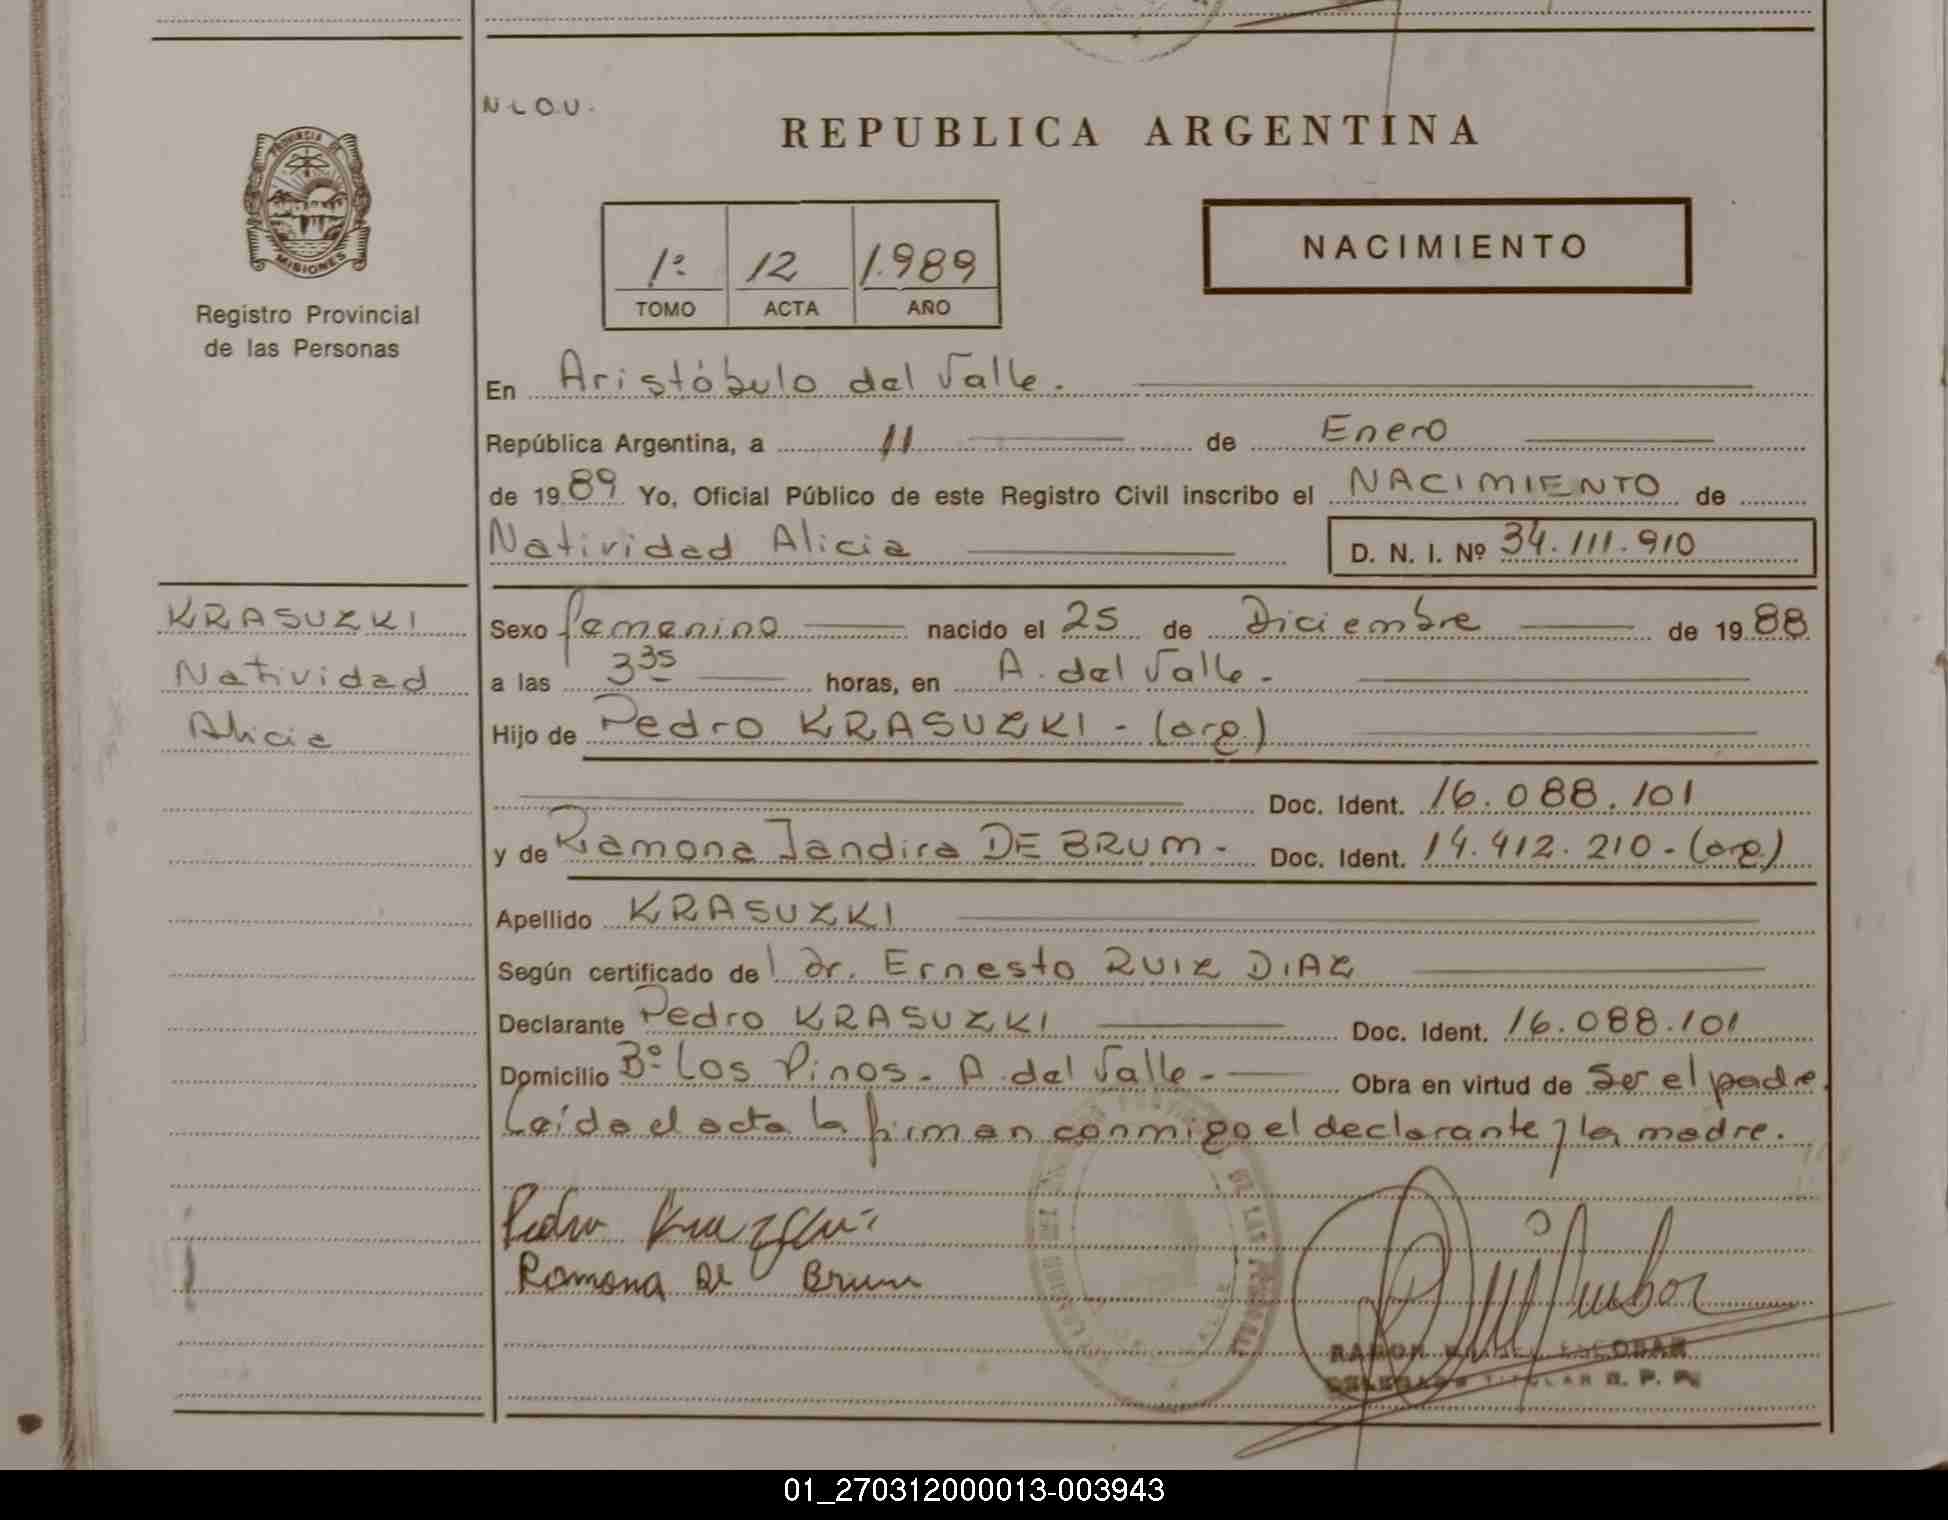 N L O U.
REPUBLICA ARGENTINA
PROVINCIA DE MISIONES
Registro Provincial
de las Personas
1º 12 1.989
TOMO ACTA AÑO
NACIMIENTO
En Aristóbulo del Valle.
República Argentina, a 11 de Enero
de 1989 Yo, Oficial Público de este Registro Civil inscribo el NACIMIENTO de
Natividad Alicia D. N. I. Nº 34.111.910
KRASUZKI
Natividad
Alicia
Sexo femenino nacido el 25 de Diciembre de 1988
a las 3 35 horas, en A. del Valle.
Hijo de Pedro KRASUZKI - (arg.)
Doc. Ident. 16.088.101
y de Ramona Jandira DE BRUM. Doc. Ident. 14.412.210 - (arg.)
Apellido KRASUZKI
Según certificado del Dr. Ernesto RUIZ DIAZ
Declarante Pedro KRASUZKI Doc. Ident. 16.088.101
Domicilio Bº Los Pinos - A. del Valle - Obra en virtud de Ser el padre.
Leída el acta la firman conmigo el declarante y la madre.
Pedro
Ramona De Brum
RAMON ESCOBAR
DELEGADO TITULAR R. P. P.
01_270312000013-003943